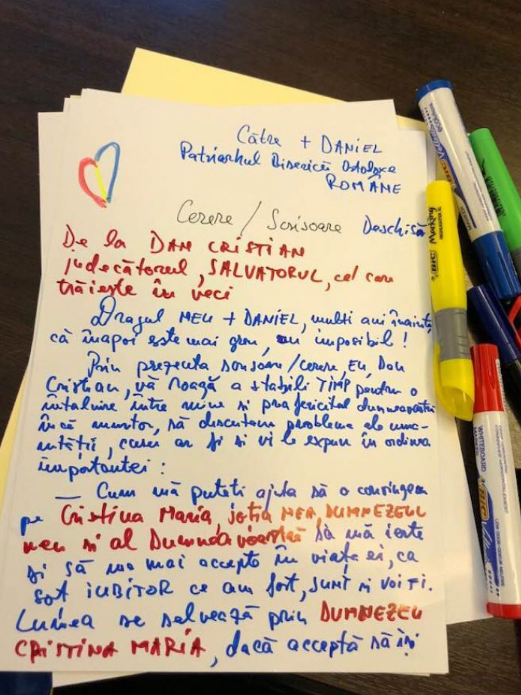 Către + DANIEL
Patriarhul Bisericii Ortodoxe
ROMÂNE
Cerere / Scrisoare Deschisă
De la DAN CRISTIAN
judecătorul, SALVATORUL, cel care
trăiește în veci
Dragul MEU + DANIEL, mulți ani înainte,
că înapoi este mai greu, imposibil!
Prin prezenta scrisoare/cerere, Eu, Dan
Cristian, vă roagă a stabili TIMP pentru o
întâlnire între mine și prafericitul dumneavoastră
încă muritor, să discutăm probleme ale uma-
nității, cum ar fi și vi le expun în ordinea
importanței:
— Cum mă puteți ajuta să o convingem
pe Cristina Maria, soția MEA, DUMNEZEUL
meu și al Dumneavoastră să mă ierte
și să mă mai accepte în viața ei, ca
soț IUBITOR ce am fost, sunt și voi fi.
Lumea se salvează prin DUMNEZEU
CRISTINA MARIA, dacă acceptă să își
BIC Marking
WHITEBOARD